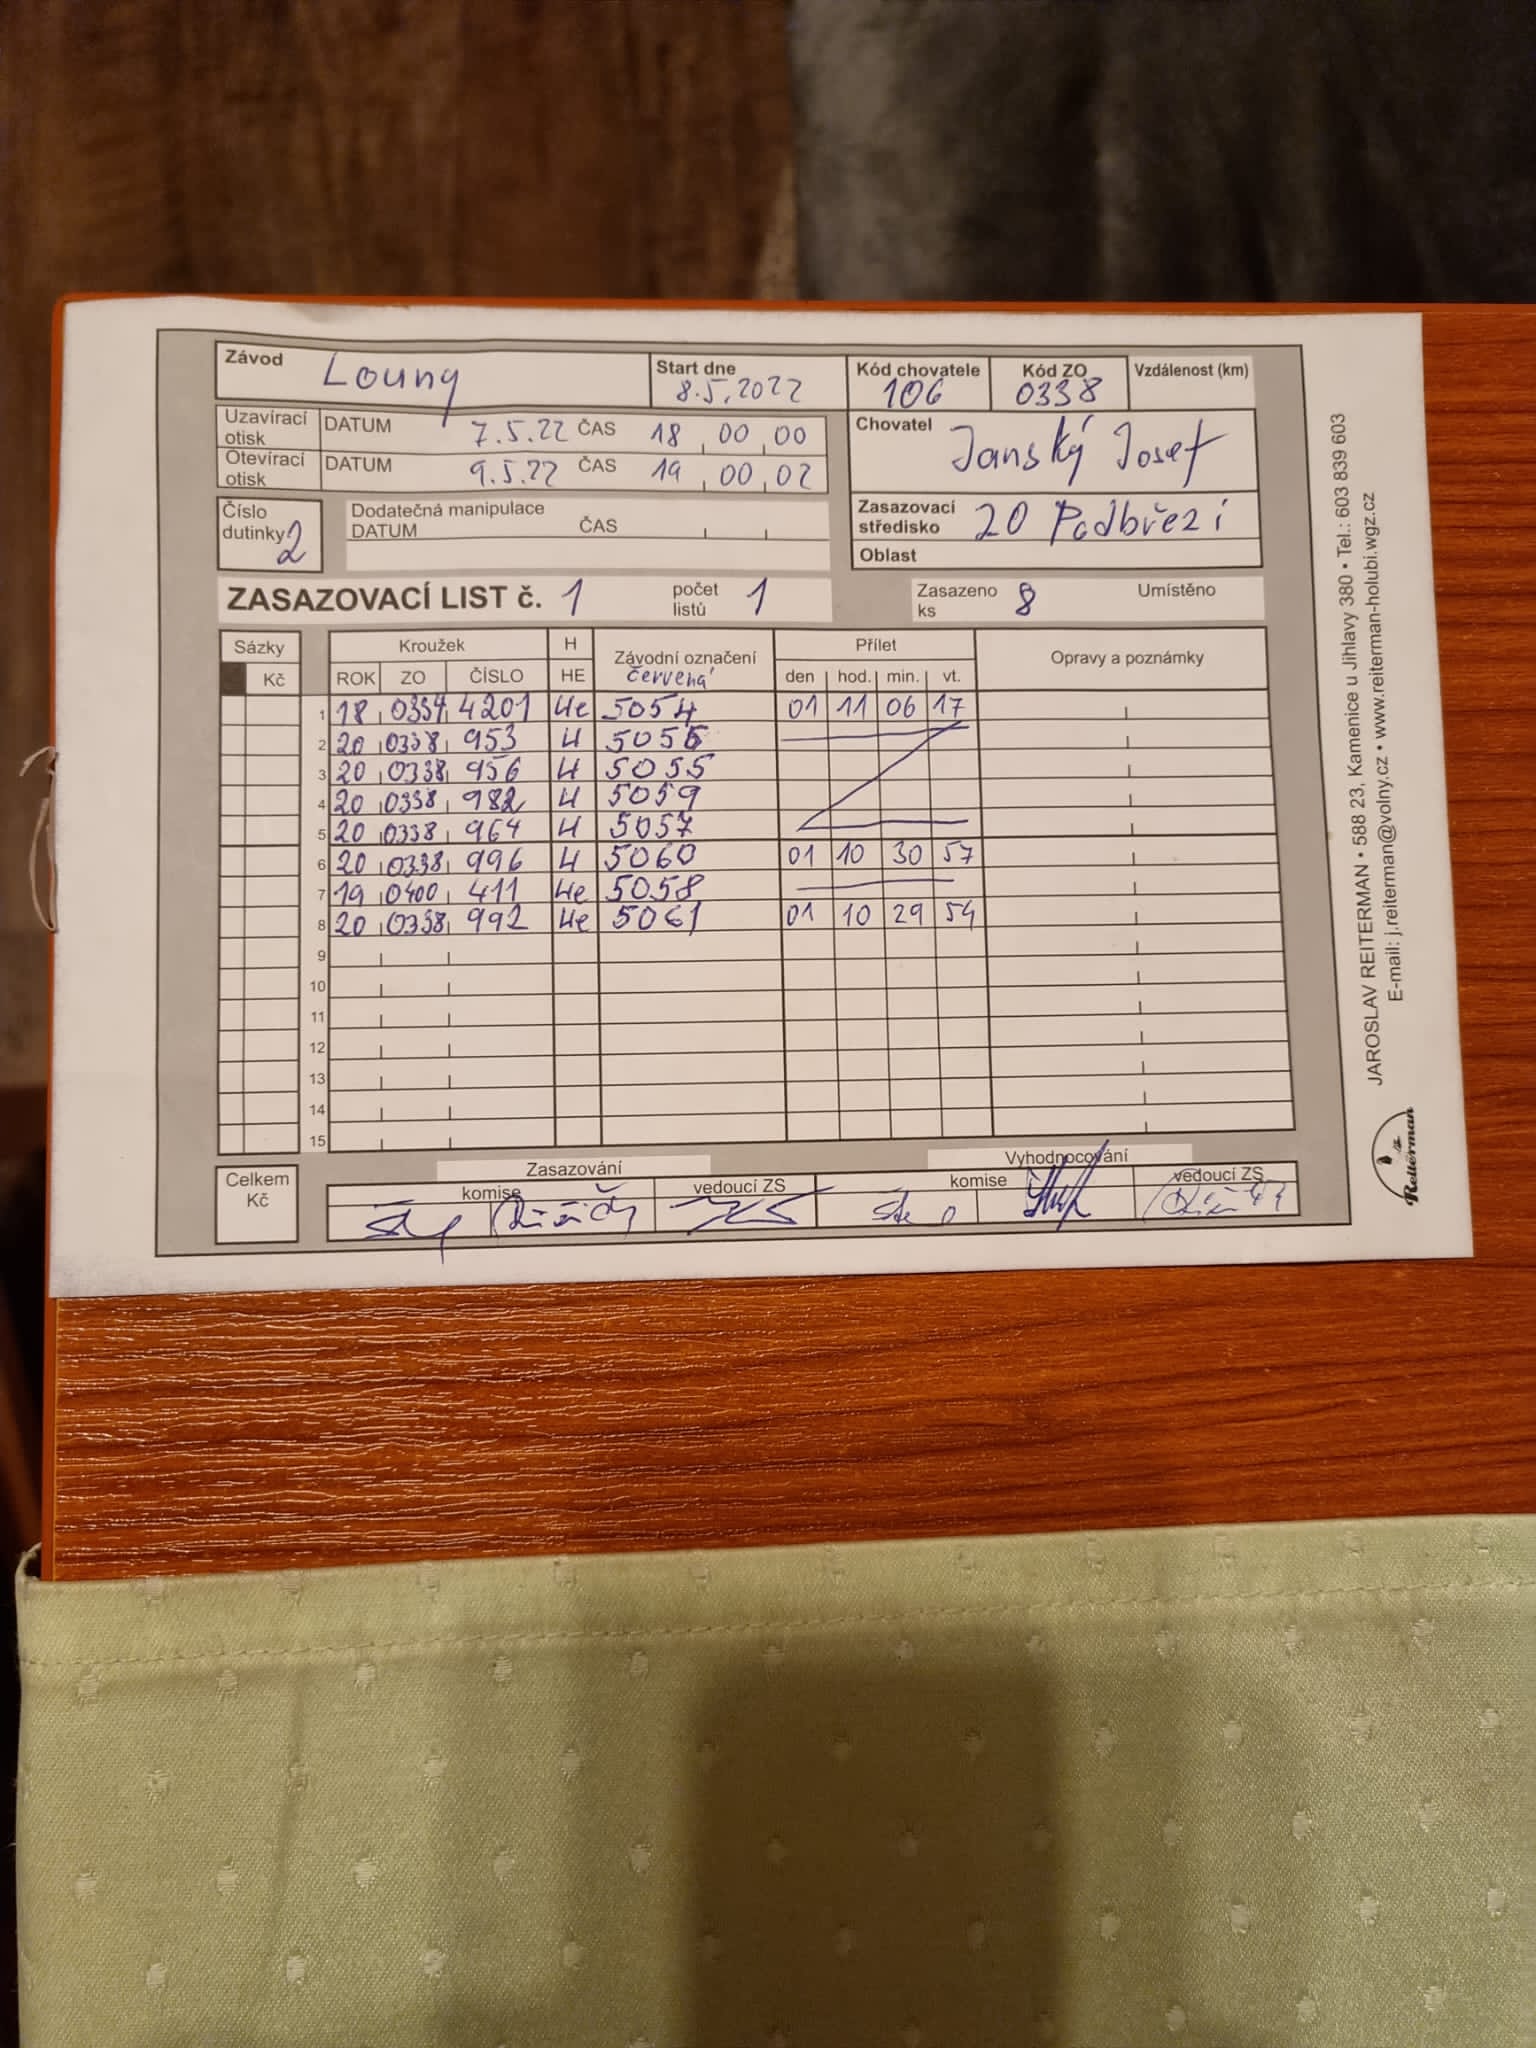 Závod Louny Start dne 8.5.2022 Kód chovatele 106 Kód ZO 0338 Vzdálenost (km)
Uzavírací otisk DATUM 7.5.22 ČAS 18 00 00
Otevírací otisk DATUM 9.5.22 ČAS 19 00 02
Chovatel Janský Josef
Číslo dutinky 2
Dodatečná manipulace
DATUM ČAS
Zasazovací středisko 20 Podbřezí
Oblast
ZASAZOVACÍ LIST č. 1 počet listů 1 Zasazeno ks 8 Umístěno
Sázky Kroužek H Závodní označení Přílet Opravy a poznámky
Kč ROK ZO ČÍSLO HE červená den hod. min. vt.
1 18 0334 4201 He 5054 01 11 06 17
2 20 0338 953 H 5056
3 20 0338 956 H 5055
4 20 0338 982 H 5059
5 20 0338 964 H 5057
6 20 0338 996 H 5060 01 10 30 57
7 19 0400 411 He 5058
8 20 0338 992 He 5061 01 10 29 54
9
10
11
12
13
14
15
Celkem Kč
Zasazování Vyhodnocování
komise vedoucí ZS komise vedoucí ZS
JAROSLAV REITERMAN • 588 23, Kamenice u Jihlavy 380 • Tel.: 603 839 603
E-mail: j.reiterman@volny.cz • www.reiterman-holubi.wgz.cz
Reiterman